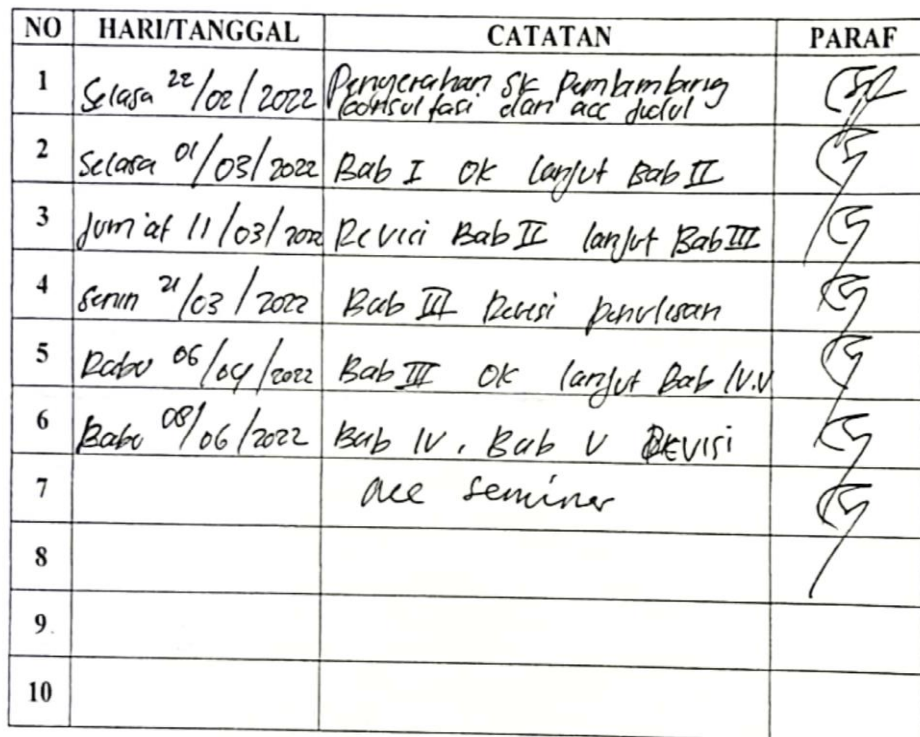 NO HARI/TANGGAL CATATAN PARAF
1 Selasa 22/02/2022 Penyerahan SK Pembimbing
konsultasi dan acc judul
2 Selasa 01/03/2022 Bab I OK lanjut Bab II
3 Jum'at 11/03/2022 Revisi Bab II lanjut Bab III
4 Senin 21/03/2022 Bab III Revisi penulisan
5 Rabu 06/04/2022 Bab III OK lanjut Bab IV.V
6 Rabu 08/06/2022 Bab IV, Bab V REVISI
7 acc seminar
8
9
10